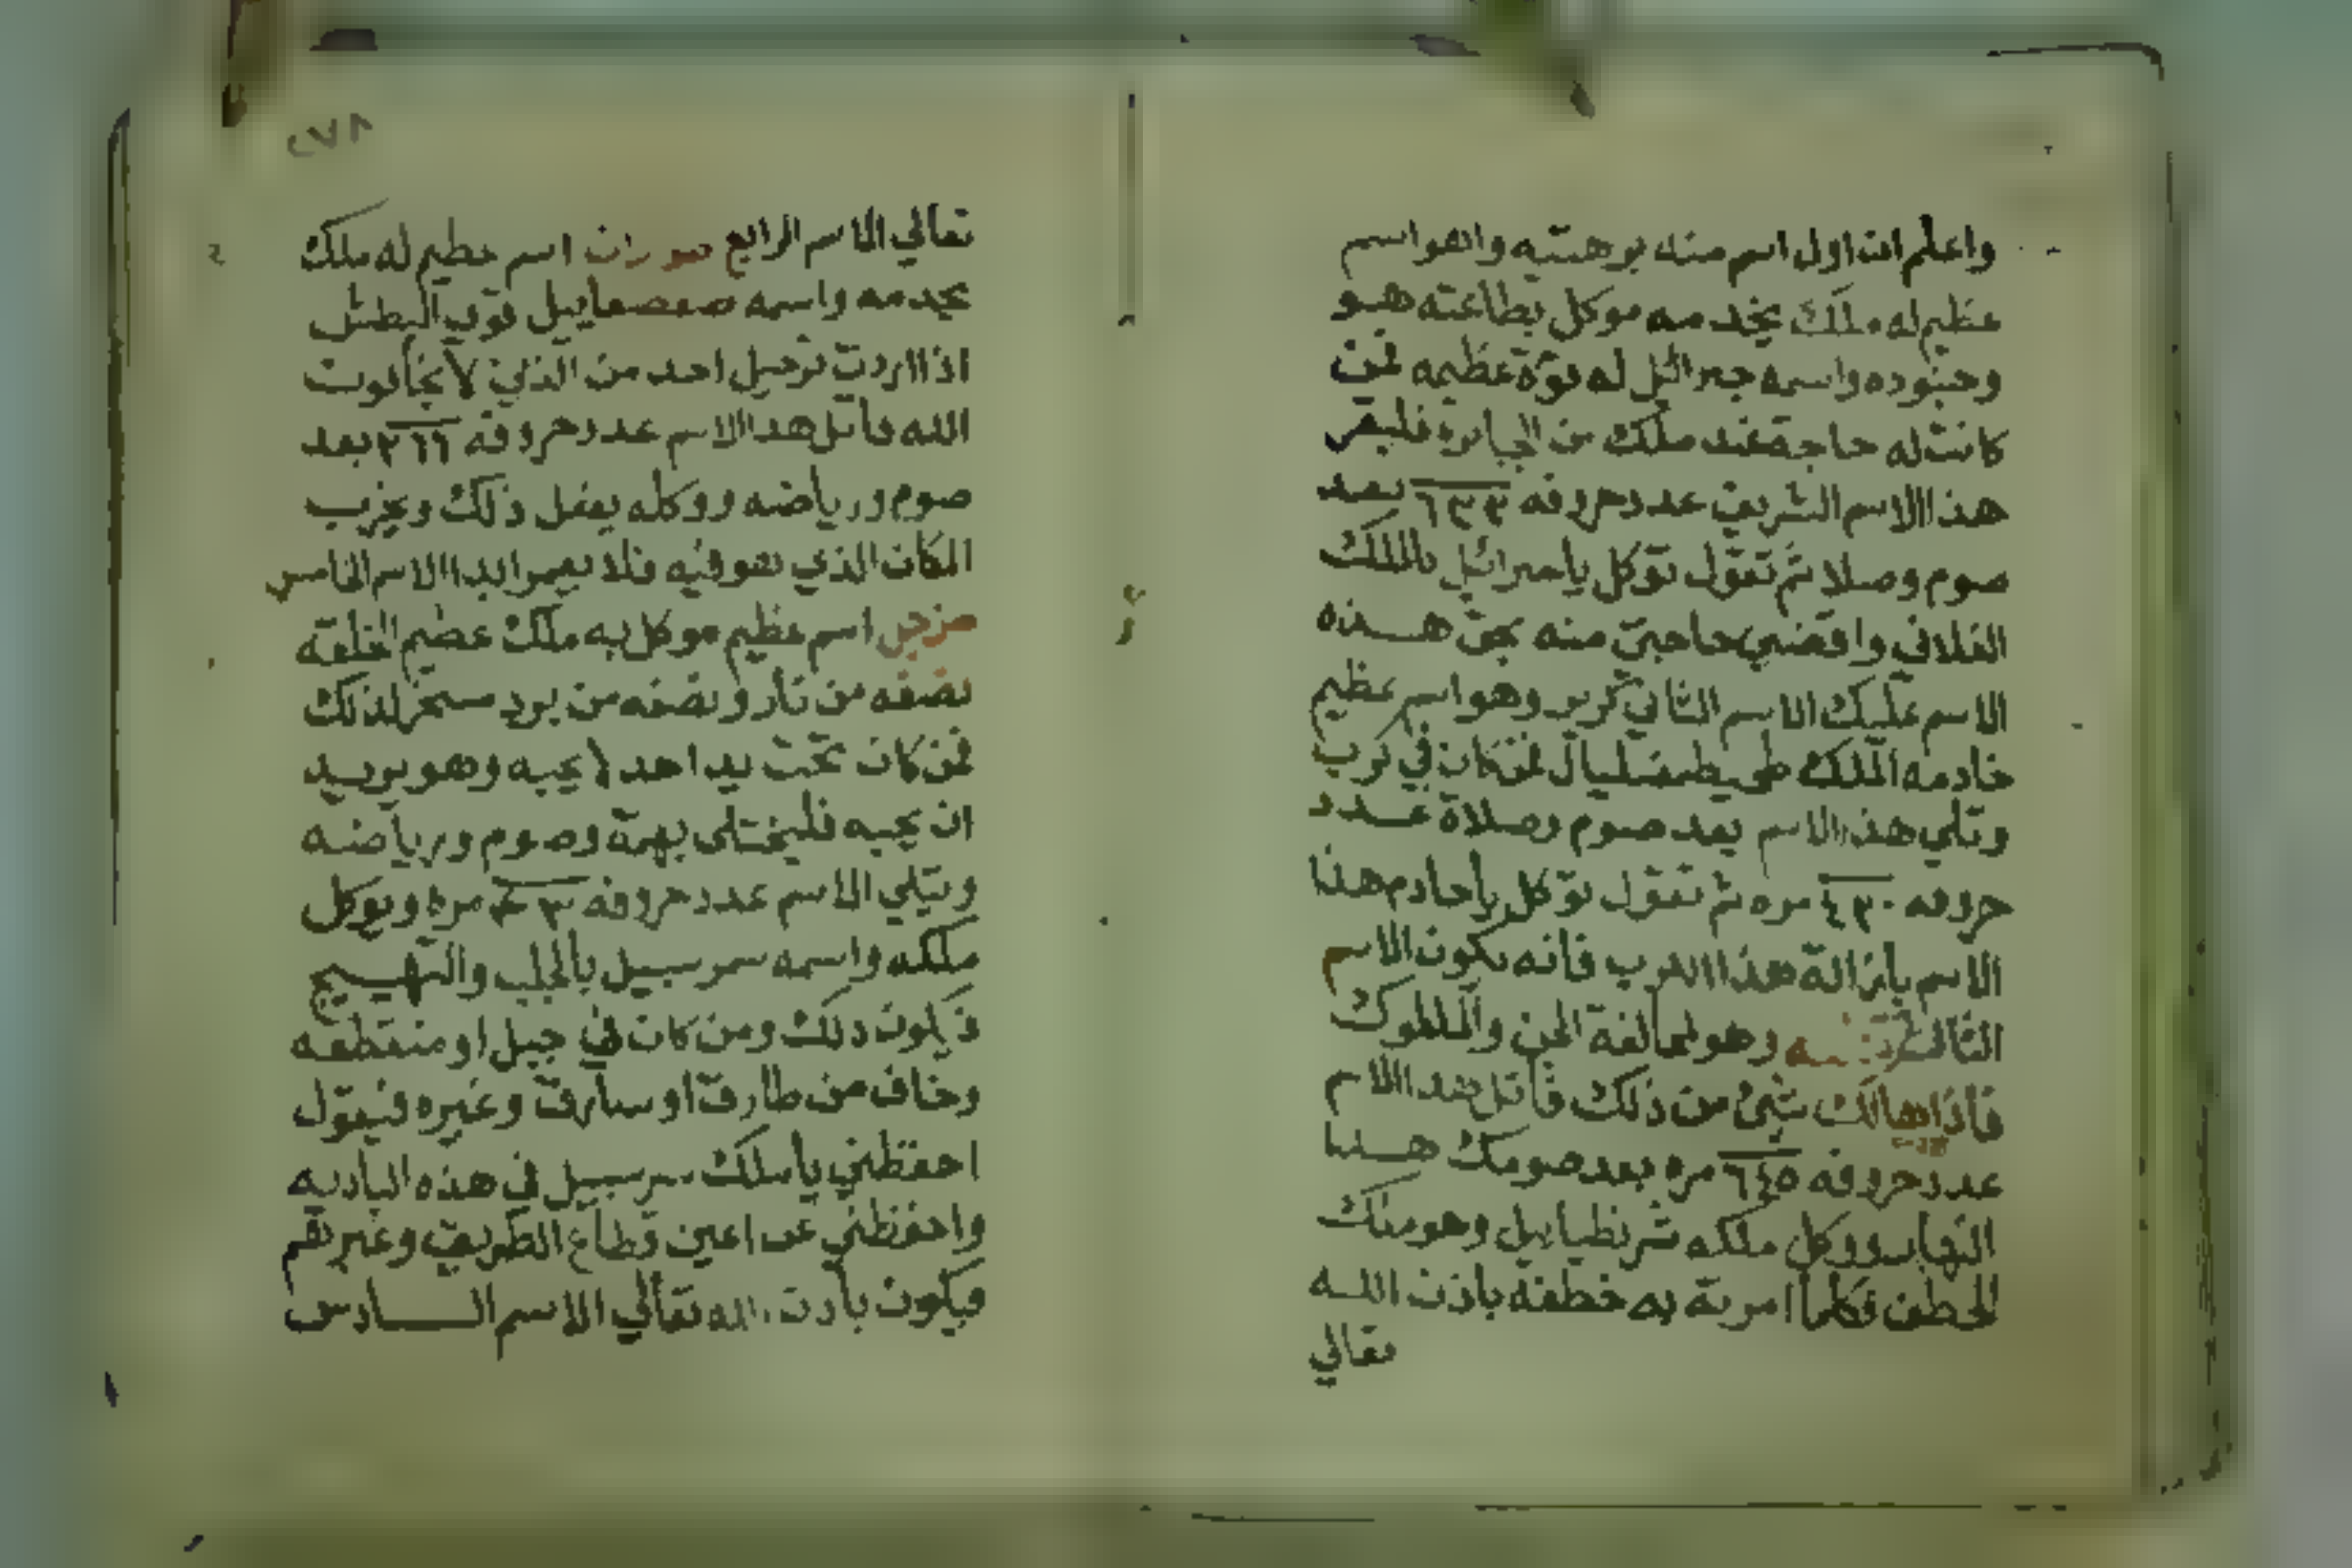 واعلم ان اول اسم منه برهتيه وهو اسم
عظيم له ملك يخدمه موكل بطاعته هو
وجنوده واسمه جبرائيل له قوة عظيمه فمن
كانت له حاجة عند ملك من الجبابرة فليقر
هذا الاسم الشريف عدد حروفه ٦٣٣ بعد
صوم وصلا ثم تقول توكل يا جبرائيل بالملك
الفلاني واقضي حاجتي منه بحق هذه
الاسم عليك الاسم الثاني كرير وهو اسم عظيم
خادمه الملك فمن كان في كرب
وتلي هذا الاسم بعد صوم وصلاة عدد
حروفه ٤٣٠ مره ثم تقول توكل يا خادم هذا
الاسم بازالة هذا الكرب فانه يكون الاسم
الثالث وهو لمخالفة الجن والملوك
فاذا هالك شيء من ذلك فاتل هذا الاسم
عدد حروفه ٦٤٥ مره بعد صومك هذا
النهار ووكل ملكه وهو ملك
الخطف فكلما امرته به خطفه باذن الله
تعالي
٢٧٨
تعالي الاسم الرابع اسم عظيم له ملك
يخدمه واسمه صعصعاييل قوي البطش
اذا اردت ترحيل احد من الذي لا يخافون
الله فاتل هذا الاسم عدد حروفه ٢٦٦ بعد
صوم ورياضه ووكله يفعل ذلك ويخرب
المكان الذي هو فيه فلا يعمر ابدا الاسم الخامس
مزجل اسم عظيم موكل به ملك عظيم الخلقة
نصفه من نار ونصفه من برد مسخر لذلك
فمن كان تحت يد احد لا يحبه وهو يريد
ان يحبه فليختلي بهمة وصوم ورياضه
ويتلي الاسم عدد حروفه مره ويوكل
ملكه واسمه بالجلب والتهييج
فيكون ذلك ومن كان في جبل او منقطعه
وخاف من طارق او سارق وغيره فيقول
احفظني يا ملك في هذه الباديه
واحفظني عن اعين قطاع الطريق وغيرهم
فيكون باذن الله تعالي الاسم السادس